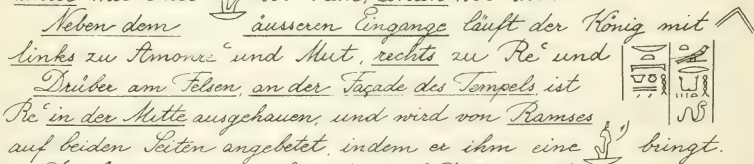 Neben dem äusseren Eingange läuft der König mit
links zu Amonreʿ und Mut, rechts zu Reʿ und
Drüber am Felsen, an der Façade des Tempels ist
Reʿ in der Mitte ausgehauen, und wird von Ramses
auf beiden Seiten angebetet, indem er ihm eine bringt.